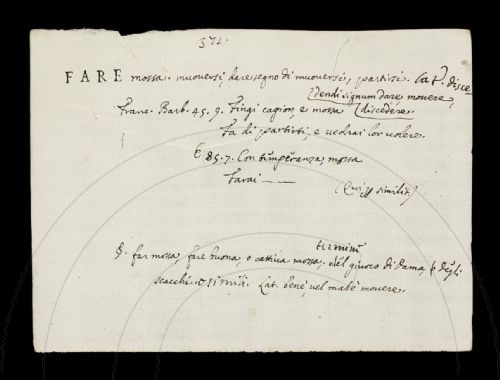 374.
FARE mossa. muoversi, dare segno di muoversi, partirsi. Lat. disce
dendi signum dare, movere,
Franc. Barb. 45. 9. Fingi cagion, e mossa discedere.
Fa di partirti, e vedrai lor volere.
E 85. 7. Con temperanza mossa
Farai
similit.)
§. far mossa, fare buona, o cattiva mossa, termini
del giuoco di Dama, degli
scacchi, e simili. Lat. bene, vel male movere.